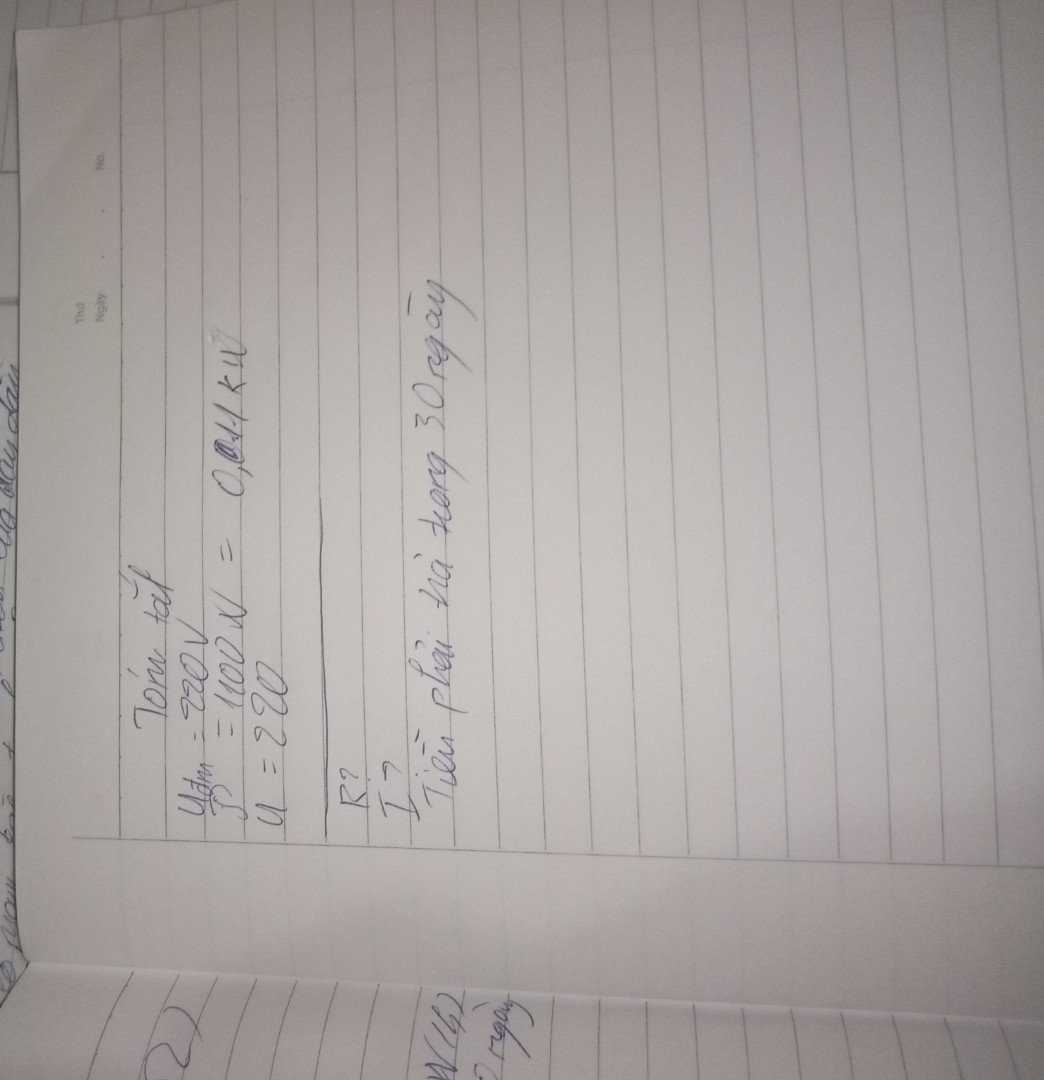 Thứ
Ngày . . No.
Tóm tắt
Uđm = 220V
= 1100W = kW
U = 220
R?
I?
Tiền phải trả trong 30 ngày
2)
ngày